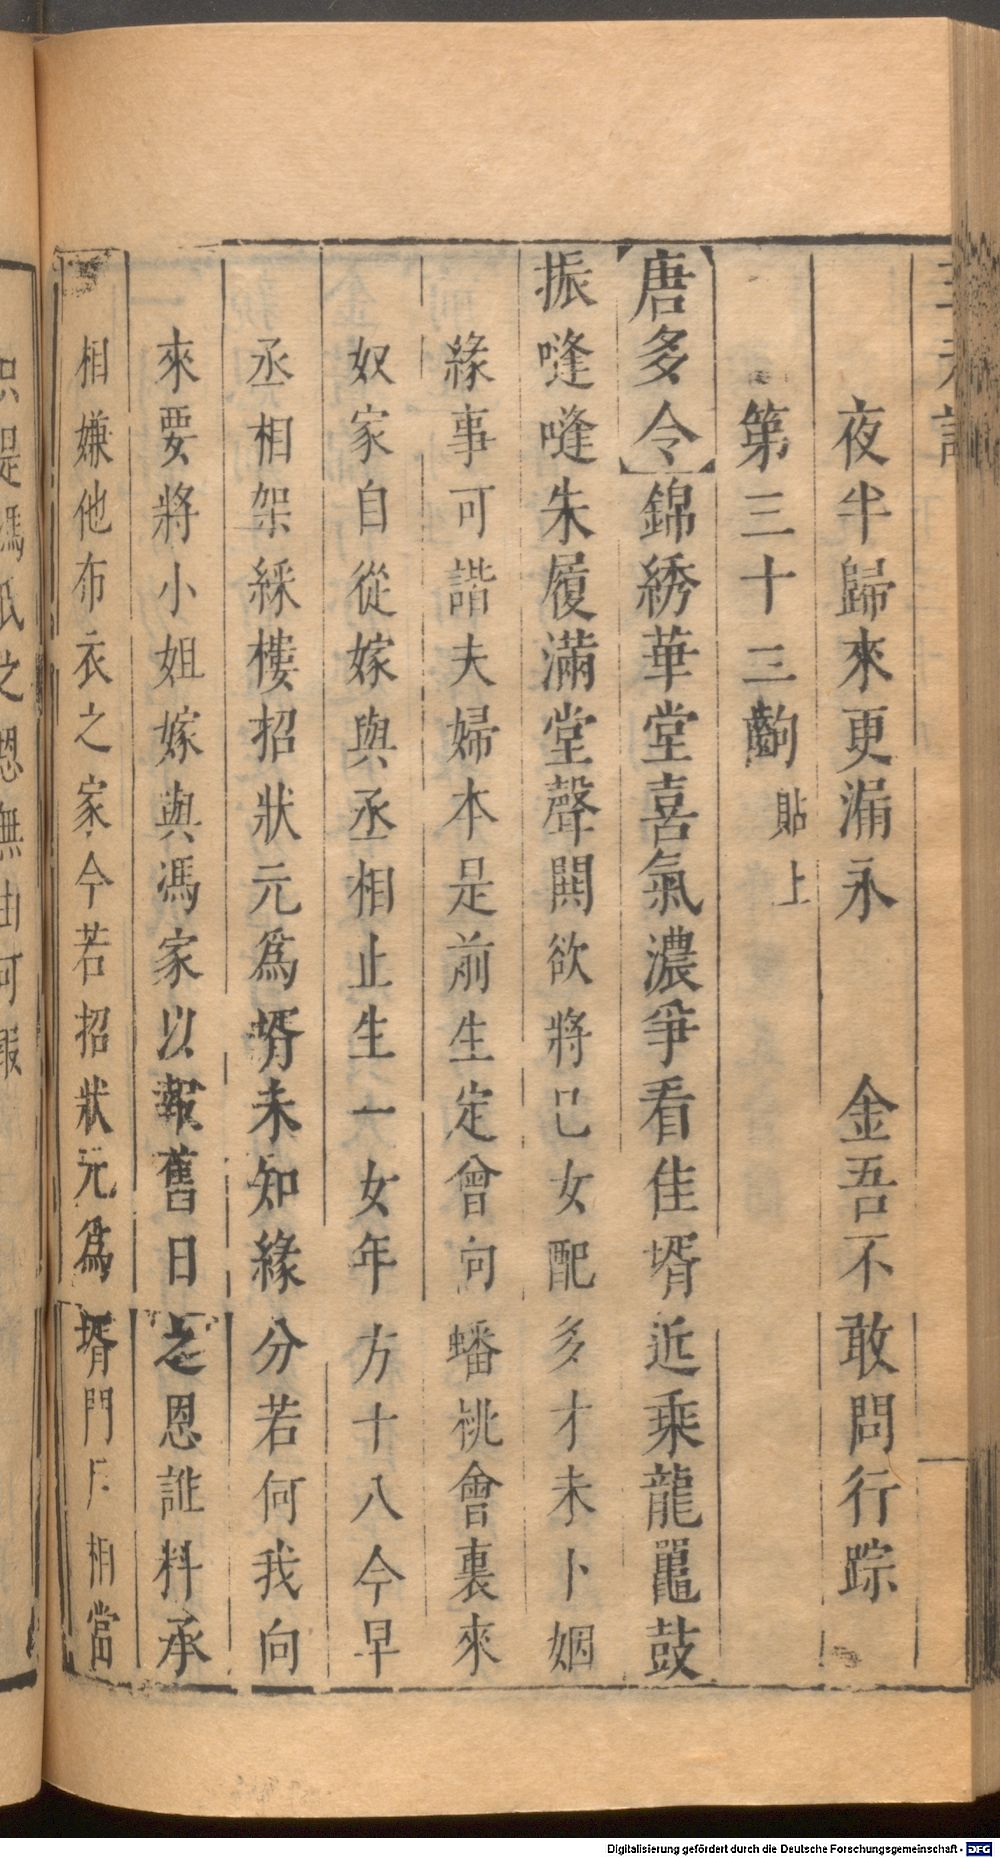 夜半歸來更漏永　金吾不敢問行踪
第三十三齣 貼上
【唐多令】錦綉華堂喜氣濃爭看佳壻近乘龍鼉鼓
振嗺嗺朱履滿堂聲閧欲將己女配多才未卜姻
緣事可諧夫婦本是前生定曾向蟠桃會裏來
奴家自從嫁與丞相止生一女年方十八今早
丞相架綵樓招狀元爲壻未知緣分若何我向
來要將小姐嫁與馮家以報舊日之恩誰料承
相嫌他布衣之家今若招狀元爲壻門戶相當
Digitalisierung gefördert durch die Deutsche Forschungsgemeinschaft - DFG